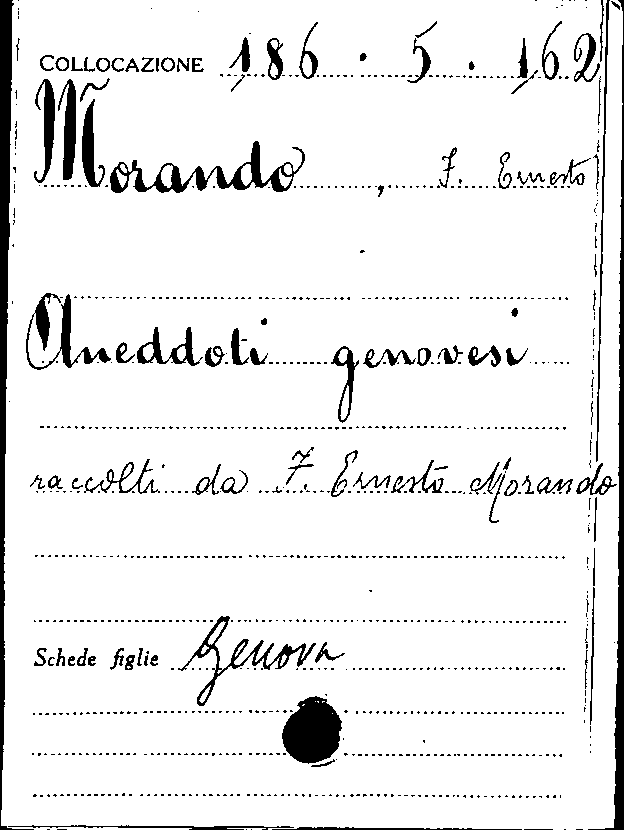 COLLOCAZIONE 186 . 5 . 162
Morando , F. Ernesto
Aneddoti genovesi
raccolti da F. Ernesto Morando
Schede figlie Genova